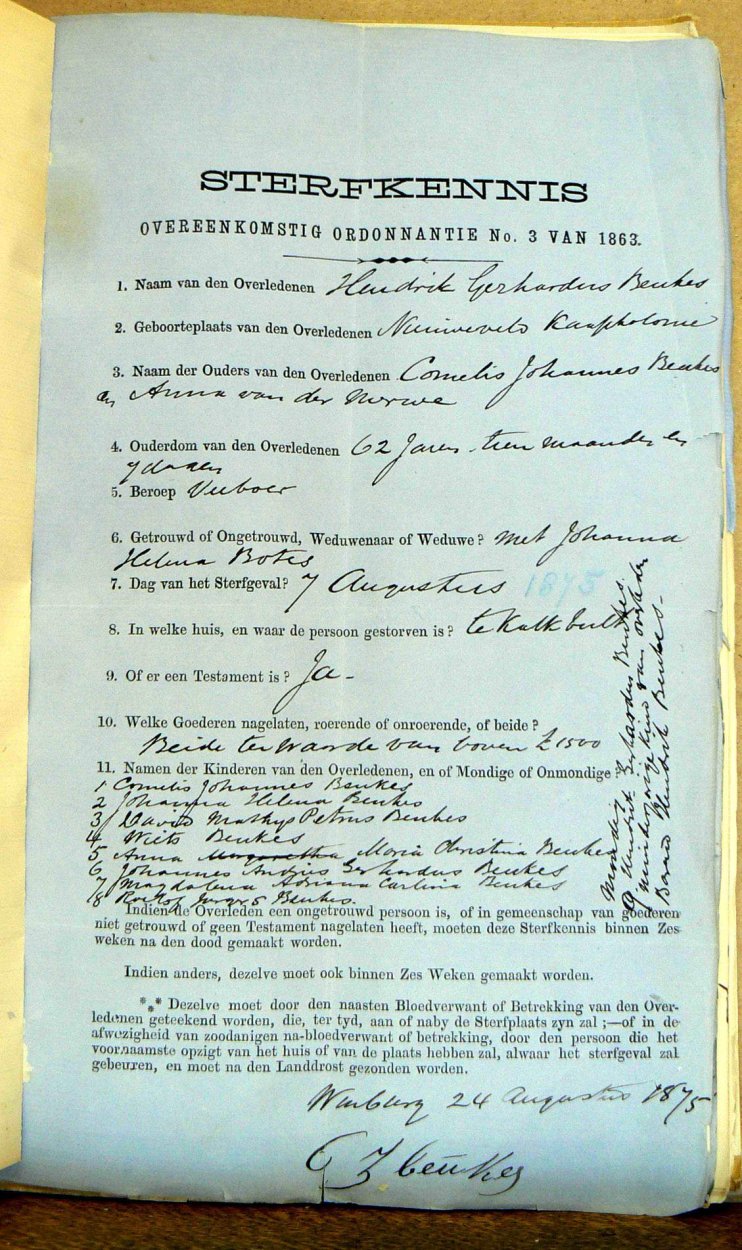 STERFKENNIS
OVEREENKOMSTIG ORDONNANTIE No. 3 VAN 1863.
1. Naam van den Overledenen Hendrik Gerhardus Beukes
2. Geboorteplaats van den Overledenen Nieuweveld Kaapkolonie
3. Naam der Ouders van den Overledenen Cornelis Johannes Beukes
en Anna van der Merwe
4. Ouderdom van den Overledenen 62 Jaren tien maanden en
7 dagen
5. Beroep Veeboer
6. Getrouwd of Ongetrouwd, Weduwenaar of Weduwe? met Johanna
Helena Botes
7. Dag van het Sterfgeval? 7 Augustus 1875
8. In welke huis, en waar de persoon gestorven is? te Kalkbult
9. Of er een Testament is? Ja -
10. Welke Goederen nagelaten, roerende of onroerende, of beide?
Beide ter waarde van boven £1500
11. Namen der Kinderen van den Overledenen, en of Mondige of Onmondige?
1 Cornelis Johannes Beukes
2 Johanna Helena Beukes
3 David Mathys Petrus Beukes
4 Wiets Beukes
5 Anna Margaretha Maria Christina Beukes
6 Johannes Andries Gerhardus Beukes
7 Magdalena Adriana Carlina Beukes
8 Roelof Beukes.
Mondig
9 Hendrik Gerhardus Beukes.
minderjarige kind van
Barend Hendrik Beukes -
Indien de Overleden een ongetrouwd persoon is, of in gemeenschap van goederen
niet getrouwd of geen Testament nagelaten heeft, moeten deze Sterfkennis binnen Zes
weken na den dood gemaakt worden.
Indien anders, dezelve moet ook binnen Zes Weken gemaakt worden.
*** Dezelve moet door den naasten Bloedverwant of Betrekking van den Over-
ledenen geteekend worden, die, ter tyd, aan of naby de Sterfplaats zyn zal ;—of in de
afwezigheid van zoodanigen na-bloedverwant of betrekking, door den persoon die het
voornaamste opzigt van het huis of van de plaats hebben zal, alwaar het sterfgeval zal
gebeuren, en moet na den Landdrost gezonden worden.
Winburg 24 Augustus 1875
C J Beukes